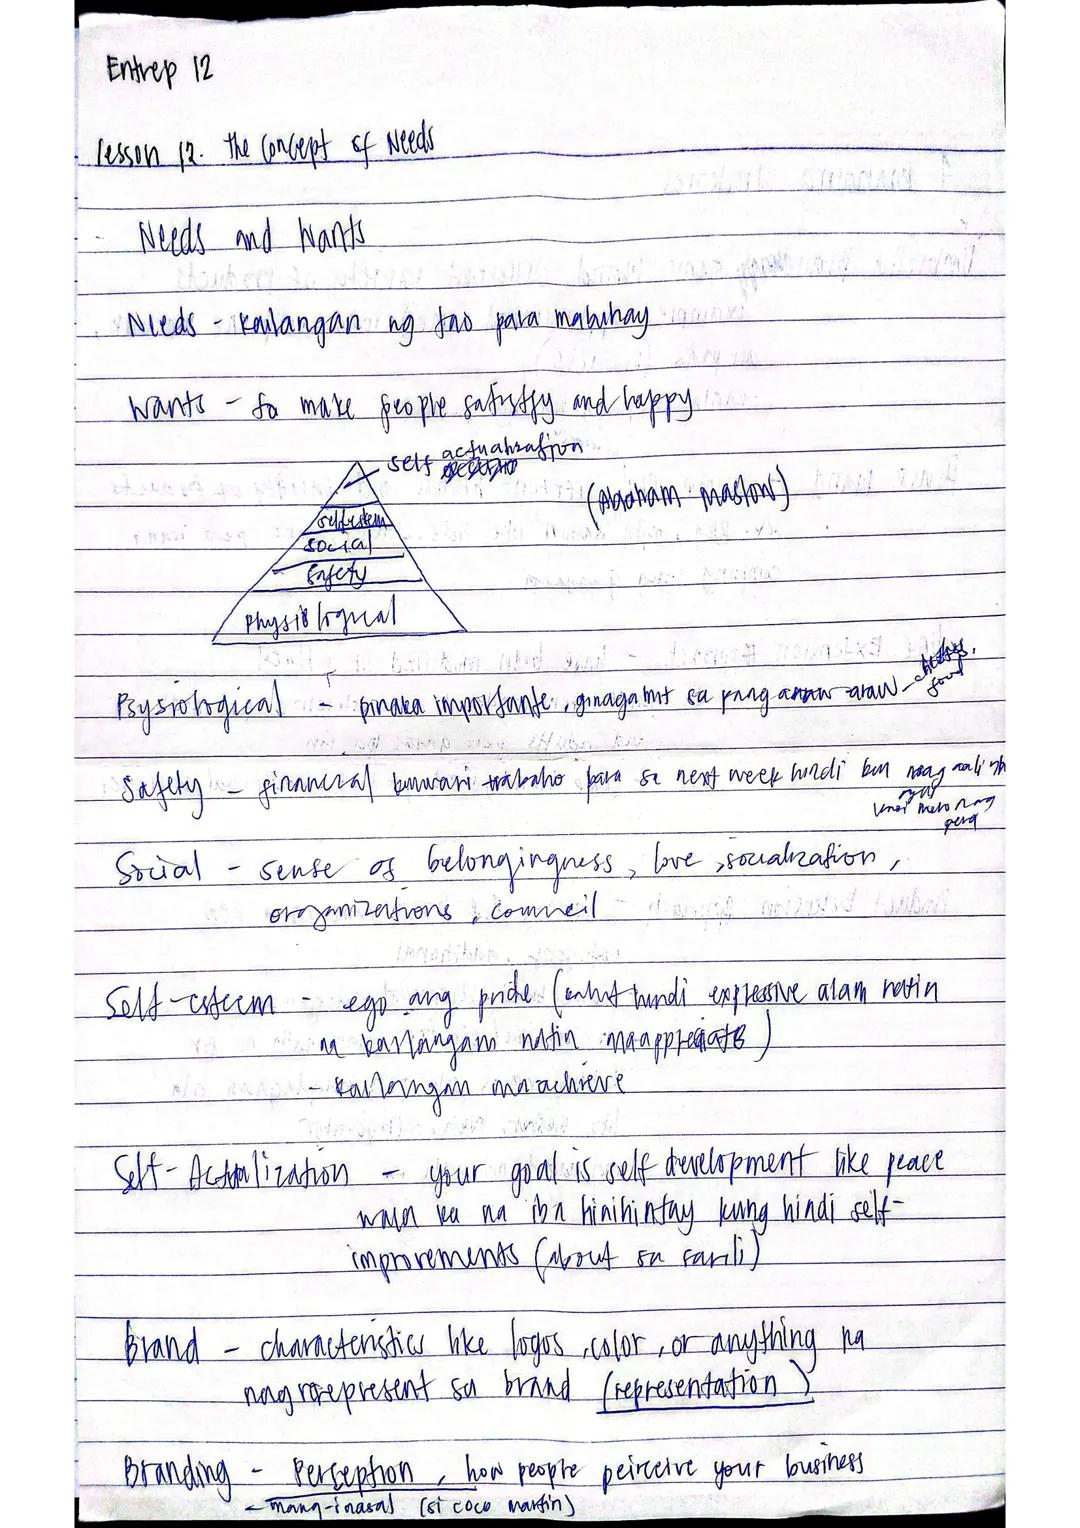 Entrep 12
lesson 12. the concept of Needs
Needs and Wants
Needs - kailangan ng tao para mabuhay
Wants - to make people satistfy and happy
self actualization
(Abraham Maslow)
selfesteem
social
safety
Physiological
Psysiological - pinaka importante, ginagamit sa pang araw-araw -
food
Safety - financial kunwari trabaho para sa next week hindi ka
pera
Social - sense of belongingness, love, socialization,
organizations, council
Self-esteem - ego ang pride ( hindi expressive alam natin
na kailangan natin maappreciate)
- kailangan maachieve
Self-Actualization - your goal is self development like peace
wala ka na iba hinihintay kung hindi self-
improvements (about sa sarili)
Brand - characteristics like logos, color, or anything na
nagrerepresent sa brand (representation)
Branding - Perseption, how people peirceive your business
- mang-inasal (si coco martin)